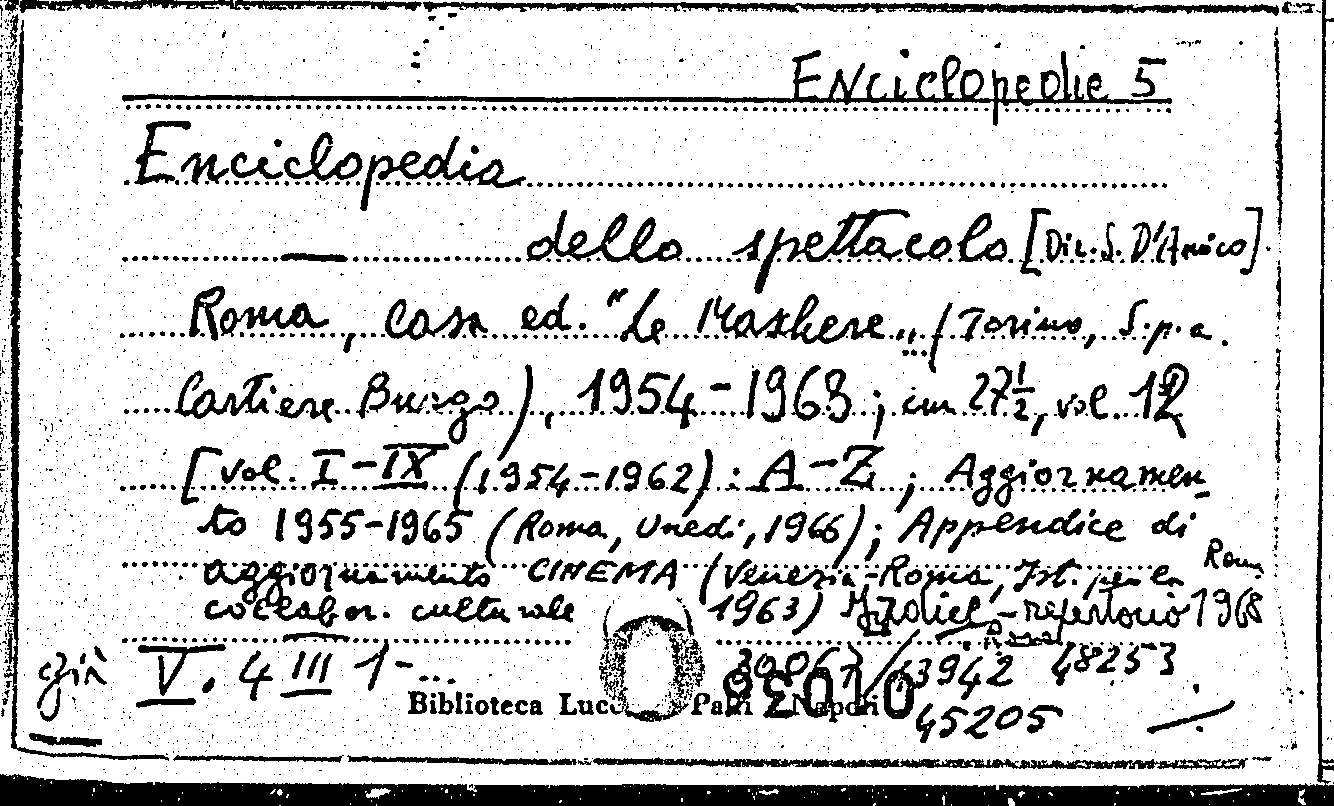 Enciclopedie 5
Enciclopedia
— dello spettacolo [Dir. S. D'Amico].
Roma, Casa ed. "Le Maschere„ (Torino, S.p.a.
Cartiere Burgo), 1954-1968; cm 27½, vol. 12
[vol. I-IX (1954-1962): A-Z; Aggiornamen-
to 1955-1965 (Roma, Unedi, 1966); Appendice di
aggiornamento CINEMA (Venezia-Roma, Ist. per la
collabor. culturale 1963) Indice-repertorio Roma 1968
già V. 4 III 1-...
13942 48253
Biblioteca Napoli
45205